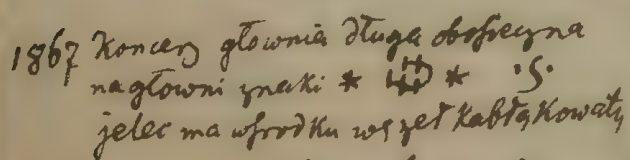 1867 Koncerz głownia długa obosieczna
na głowni znaki * * ·S·
jelec ma w środku węzeł kabłąkowaty